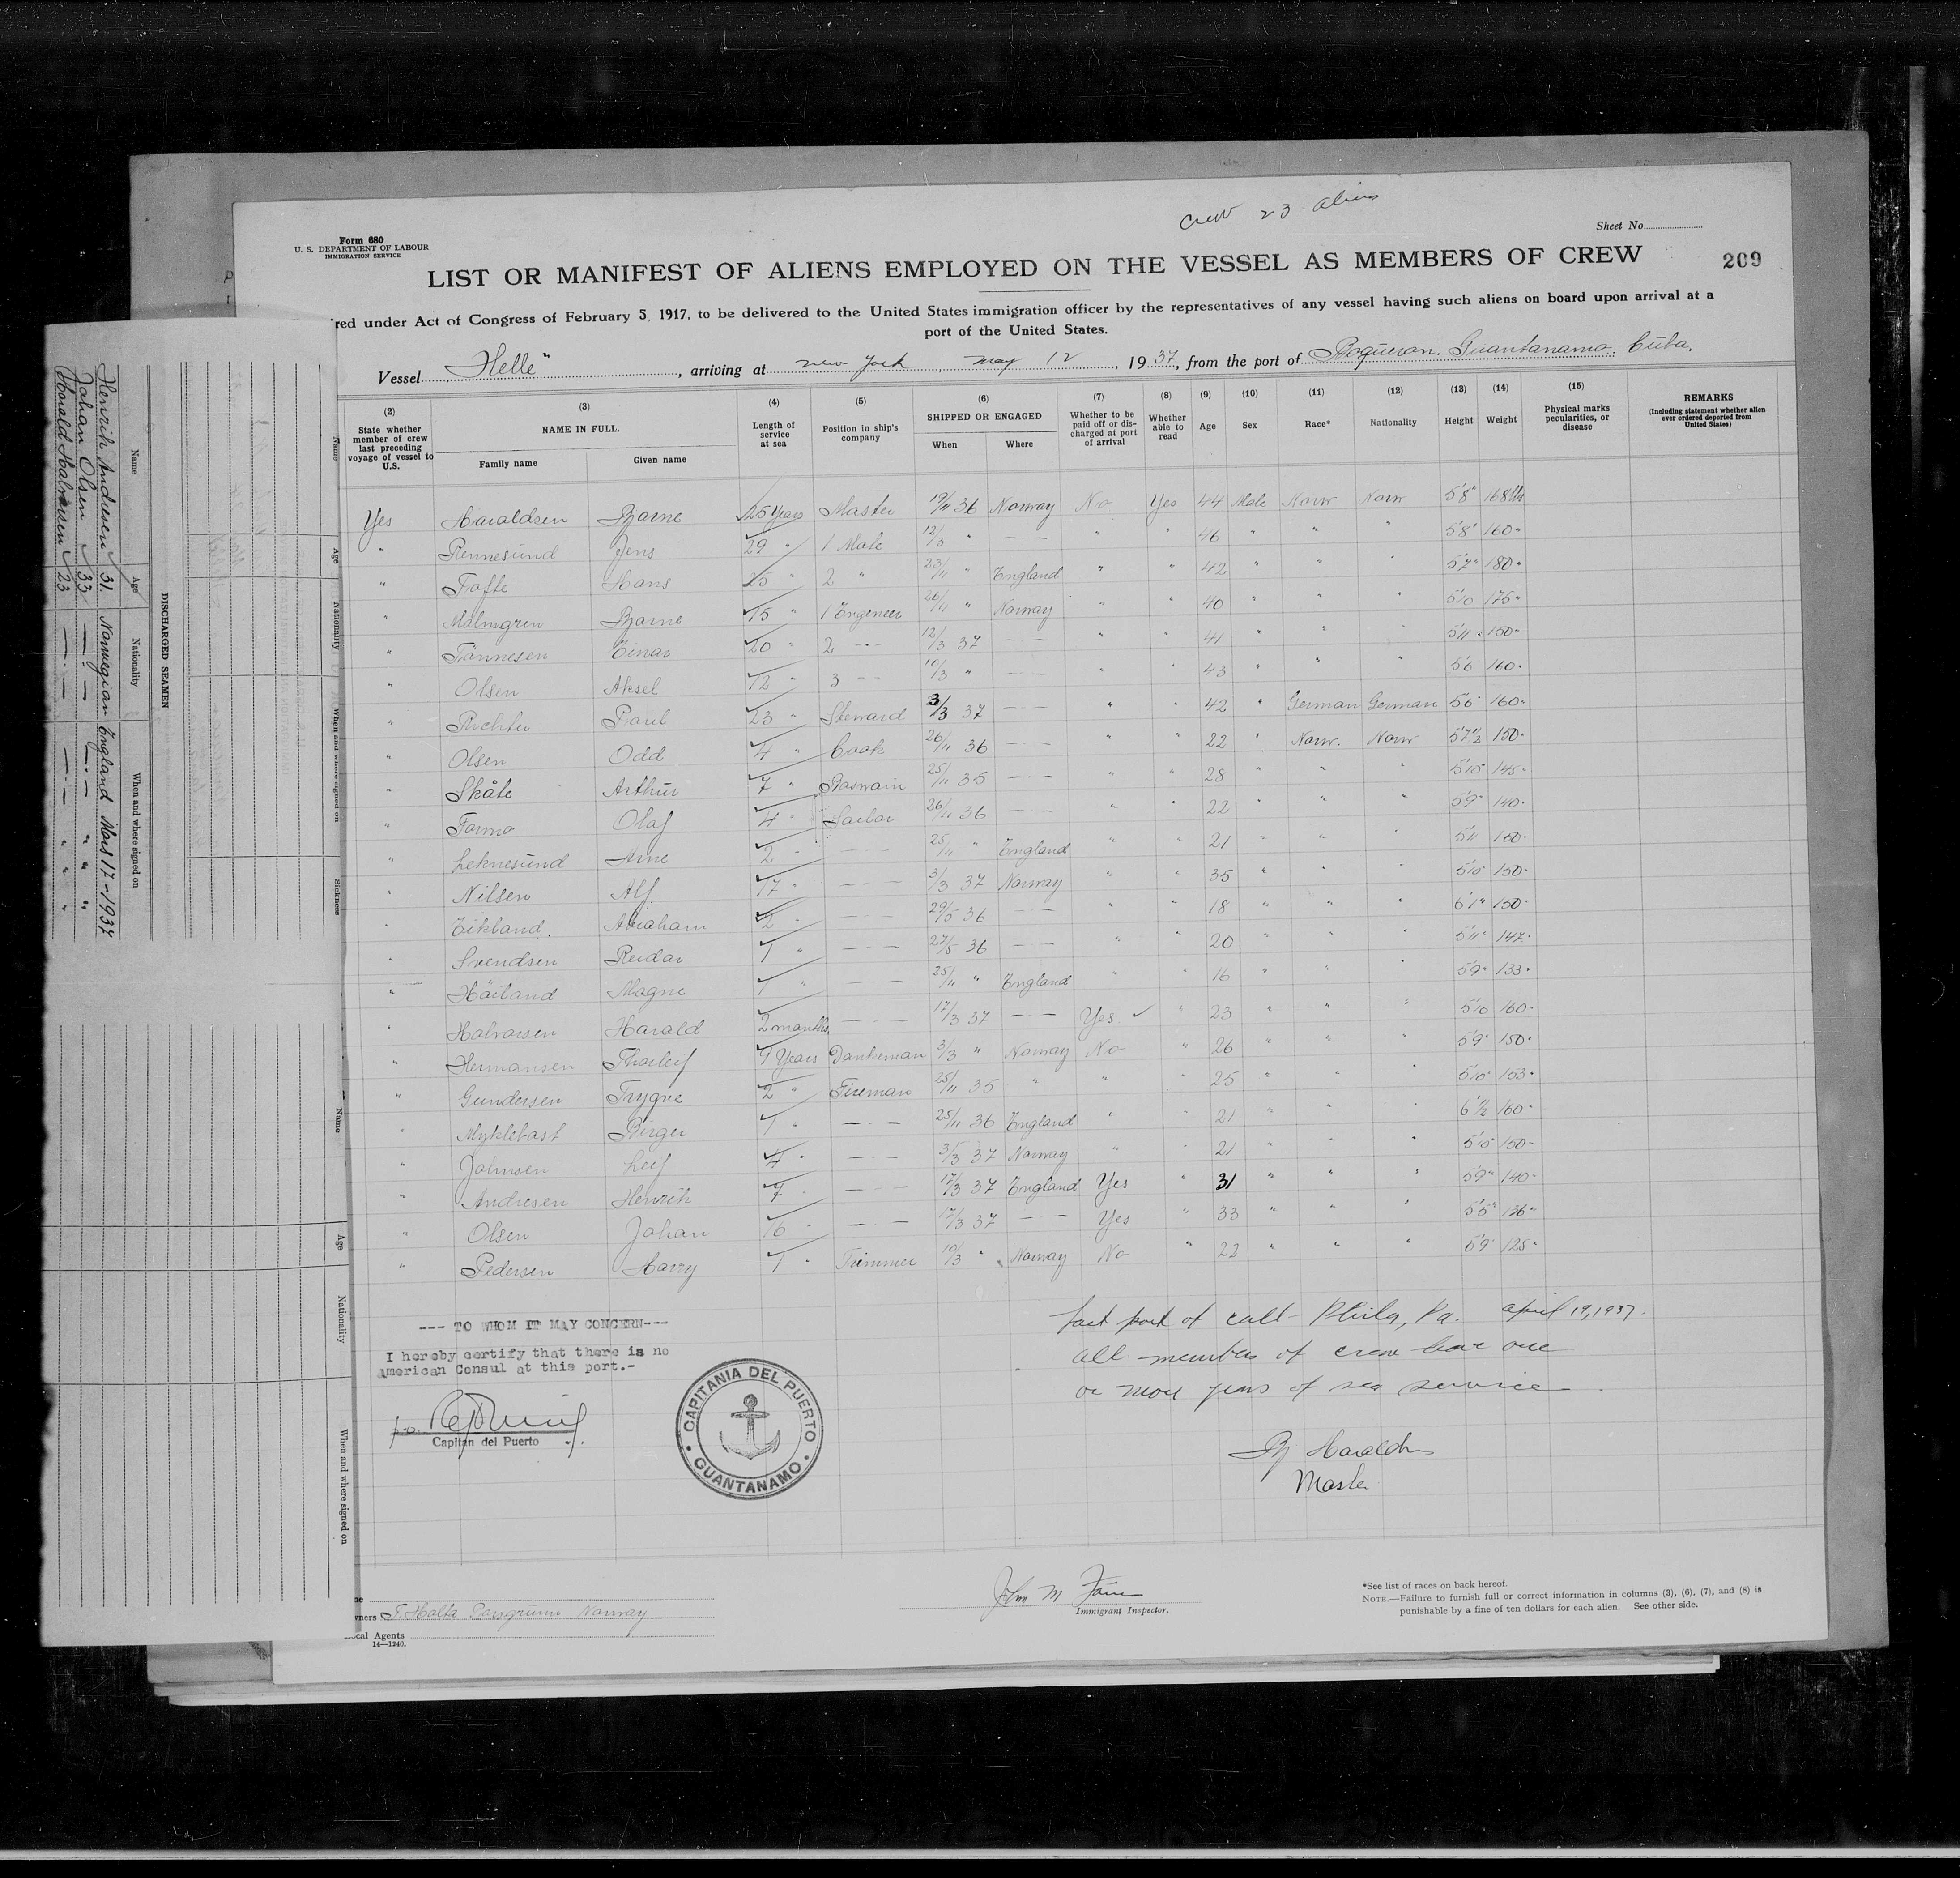 Crew 23 aliens
Form 680
U. S. DEPARTMENT OF LABOUR
IMMIGRATION SERVICE
Sheet No.
LIST OR MANIFEST OF ALIENS EMPLOYED ON THE VESSEL AS MEMBERS OF CREW
209
red under Act of Congress of February 5, 1917, to be delivered to the United States immigration officer by the representatives of any vessel having such aliens on board upon arrival at a
port of the United States.
Vessel "Helle", arriving at New York, May 12, 1937, from the port of Boqueron. Guantanamo. Cuba.
(2) State whether member of crew last preceding voyage of vessel to U.S. (3) NAME IN FULL. Family name Given name (4) Length of service at sea (5) Position in ship's company (6) SHIPPED OR ENGAGED When Where (7) Whether to be paid off or discharged at port of arrival (8) Whether able to read (9) Age (10) Sex (11) Race* (12) Nationality (13) Height (14) Weight (15) Physical marks pecularities, or disease REMARKS (Including statement whether alien ever ordered deported from United States)
Yes Haraldsen Bjarne 25 Years Master 19/11 36 Norway No Yes 44 Male Norw Norw 5'8" 168 lbs
" Rennesund Jens 29 " 1 Mate 12/3 " — - — " " 46 " " " 5'8" 160 "
" Tofte Hans 25 " 2 " 23/11 " England " " 42 " " " 5'7" 180 "
" Malmgren Bjarne 15 " 1 Engeneer 26/11 " Norway " " 40 " " " 5'10 175 "
" Tönnesen Einar 20 " 2 — - — 12/3 37 — - — " " 41 " " " 5'11 150 "
" Olsen Aksel 12 " 3 — - — 10/3 " — - — " " 43 " " " 5'6 160 "
" Richter Paul 23 " Steward 3/3 37 — - — " " 42 " German German 5'6 160 "
" Olsen Odd 4 " Cook 26/11 36 — - — " " 22 " Norw. Norw 5'7 1/2 150 "
" Skåte Arthur 7 " Boswain 25/11 35 — - — " " 28 " " " 5'10 145 "
" Formo Olaf 4 " Sailor 26/11 36 — - — " " 22 " " " 5'9" 140 "
" Leknesund Arne 2 " — - — 25/11 " England " " 21 " " " 5'11 160 "
" Nilsen Alf 17 " — - — 3/3 37 Norway " " 35 " " " 5'10 150 "
" Eikland. Abraham 2 " — - — 29/5 36 — - — " " 18 " " " 6'1" 150 "
" Svendsen Reidar 1 " — - — 27/5 36 — - — " " 20 " " " 5'11" 147 "
" Håiland Magne 1 " — - — 25/11 " England " " 16 " " " 5'9" 133 "
" Halvorsen Harald 2 months — - — 17/3 37 — - — Yes " 23 " " " 5'10 160 "
" Hermansen Thorleif 9 Years Donkeman 3/3 " Norway No " 26 " " " 5'9" 150 "
" Gundersen Trygve 2 " Fireman 25/11 35 " " " 25 " " " 5'10 153 "
" Myklebost Birger 1 " — - — 25/11 36 England " " 21 " " " 6'1/2 160 "
" Johnsen Leif 4 " — - — 3/3 37 Norway " " 21 " " " 5'10 150 "
" Andresen Henrik 7 " — - — 17/3 37 England Yes " 31 " " " 5'9" 140 "
" Olsen Johan 16 " — - — 17/3 37 — - — Yes " 33 " " " 5'5" 136 "
" Pedersen Harry 1 " Trimmer 10/3 " Norway No " 22 " " " 5'9 125 "
Last port of call - Phila, Pa. April 19, 1937.
All members of crew have one
or more years of sea service
Bj Haraldsen
Master
--- TO WHOM IT MAY CONCERN---
I hereby certify that there is no
American Consul at this port.-
Capitan del Puerto
CAPITANIA DEL PUERTO
GUANTANAMO
wners Porsgrunn Norway
ocal Agents
14—1240.
Immigrant Inspector.
*See list of races on back hereof.
NOTE.—Failure to furnish full or correct information in columns (3), (6), (7), and (8) is
punishable by a fine of ten dollars for each alien. See other side.
DISCHARGED SEAMEN
Name Age Nationality When and where signed on
Henrik Andresen 31. Norwegian England Mars 17-1937
Johan Olsen 33 — " — — " — " " "
Harald Halvorsen 23 — " — — " — " " "
Name Age Nationality When and where signed on Sickness
Name Age Nationality When and where signed on